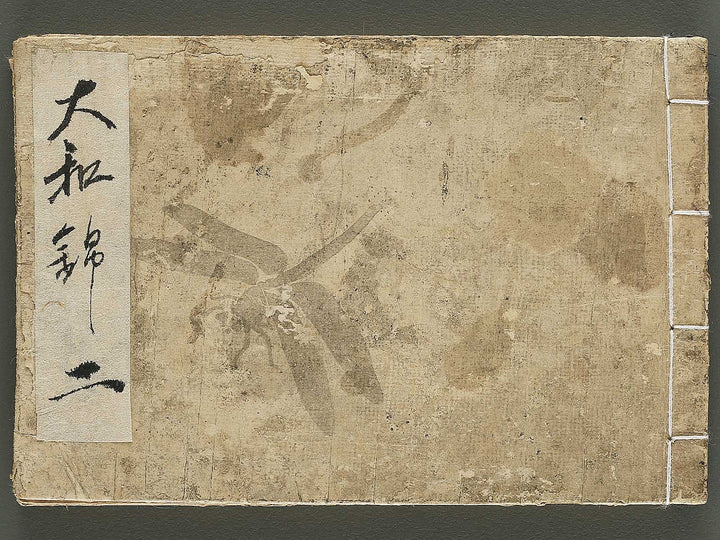 大和錦 二